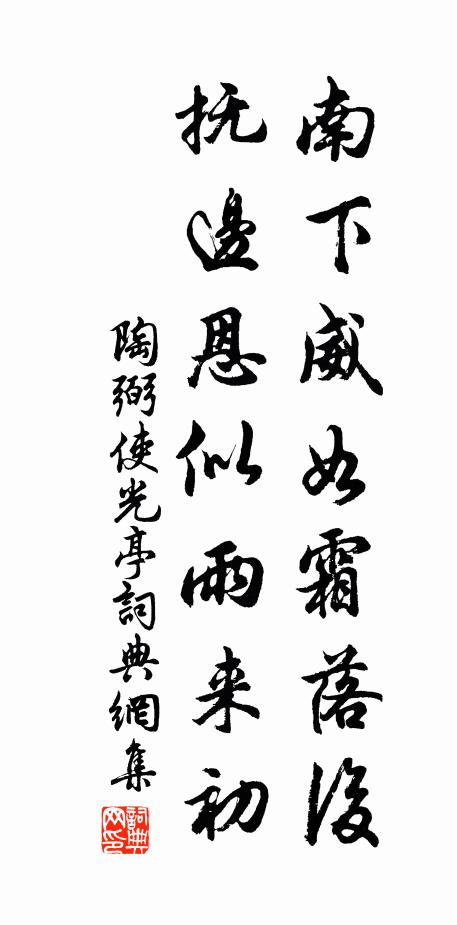 南下威如霜落後
抚邊恩似雨来初
陶弼使光亭詞典網集
詞典网印